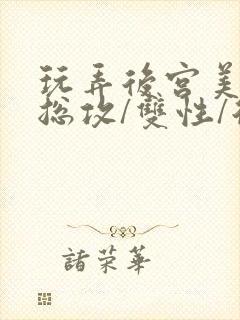 玩弄後宮美
总攻/雙性/
諸荣華